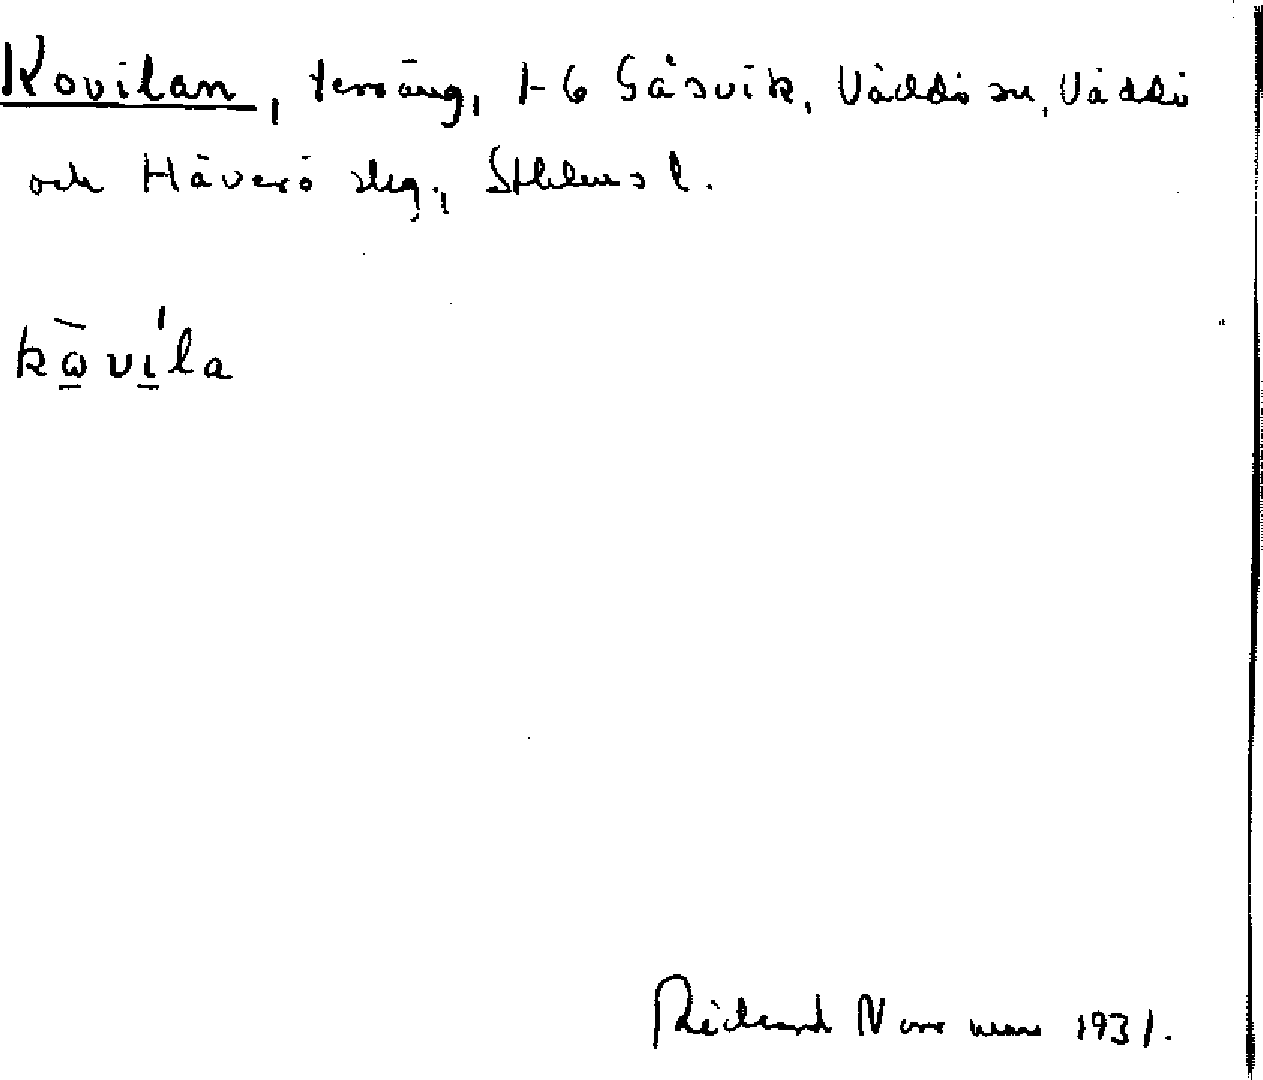 Kovilan, terräng, 1-6 Gåsvik, Väddö sn, Väddö
och Häverö skg., Sthlms l.
kὼ̲vı̲́la
Richard Norrman 1931.